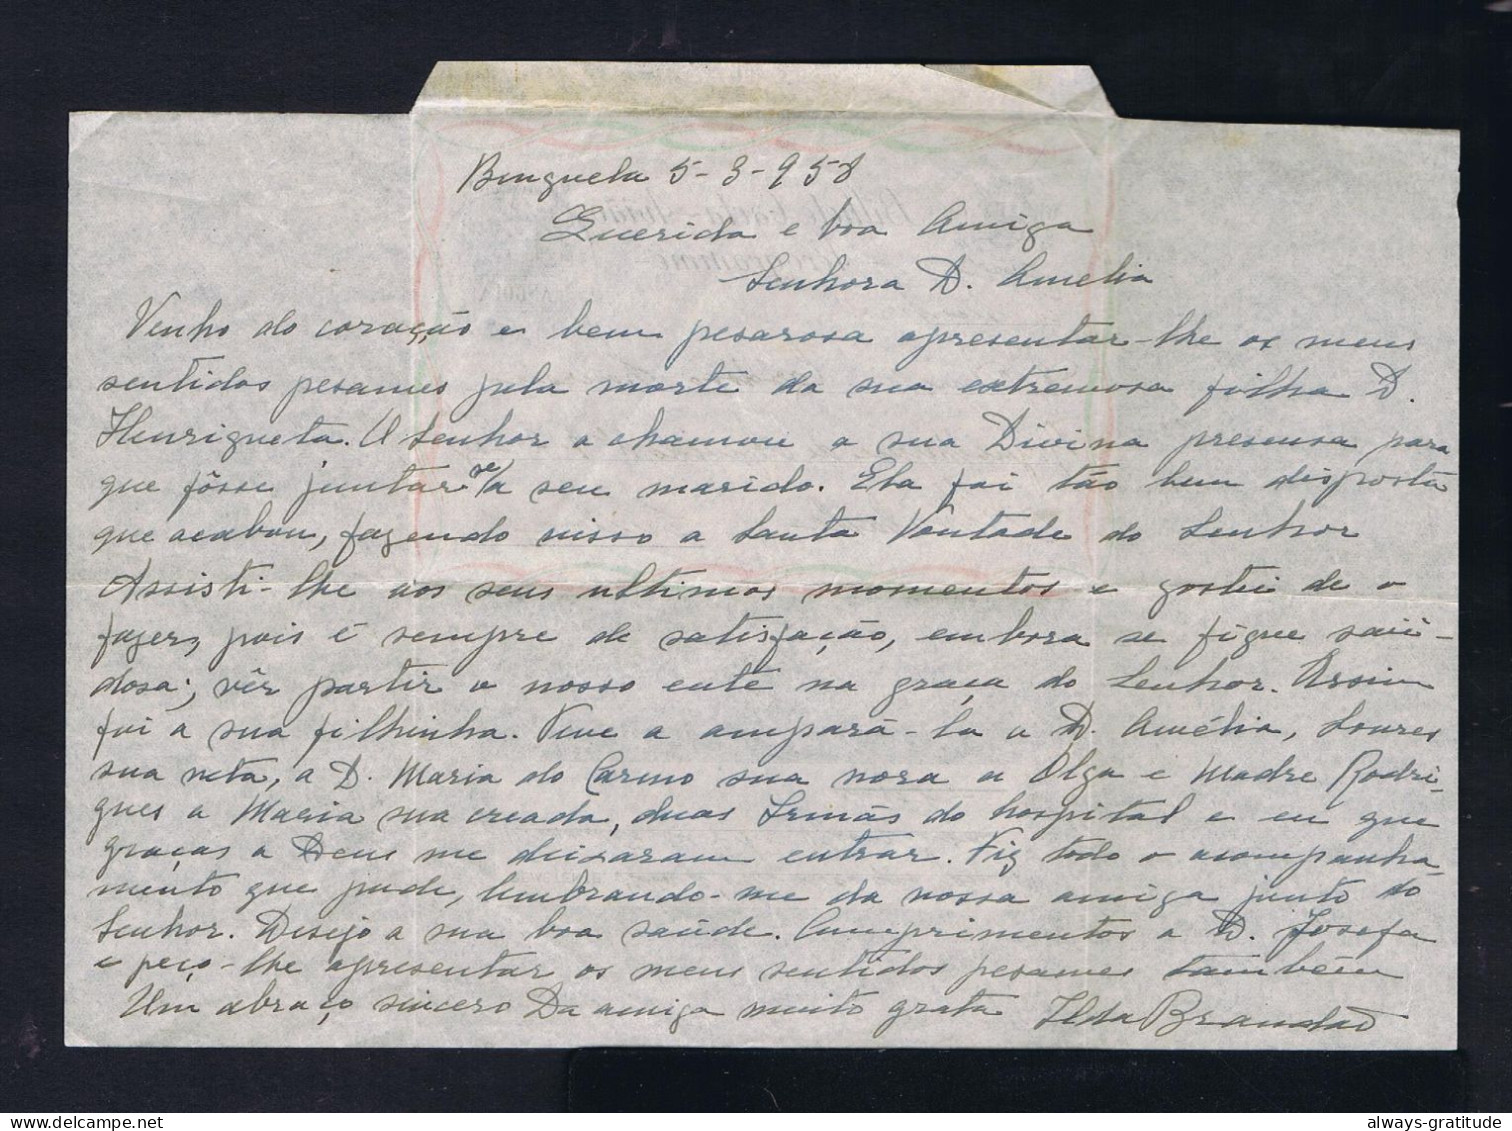 Benguela 5-3-958
Querida e boa Amiga
Senhora D. Amelia
Venho do coração e bem pesarosa apresentar-lhe os meus
sentidos pesames pela morte da sua extremosa filha D.
Henriqueta. O Senhor a chamou a sua Divina presensa para
que fôsse juntar se/a seu marido. Ela foi tão bem disposta
que acabou, fazendo nisso a Santa Vontade do Senhor
Assisti-lhe aos seus ultimos momentos e gostei de o
fazer, pois é sempre de satisfação, embora se fique sau-
dosa; vêr partir o nosso ente na graça do Senhor. Assim
foi a sua filhinha. Teve a ampará-la a D. Amélia, Loures
sua neta, a D. Maria do Carmo sua nora a Olga e Madre Rodri-
gues a Maria sua creada, duas Irmãs do hospital e eu que
graças a Deus me deixaram entrar. Fiz todo o acompanha-
mento que pude, lembrando-me da nossa amiga junto do
Senhor. Desejo a sua boa saúde. Cumprimentos a D. Josefa
e peço-lhe apresentar os meus sentidos pesames também
Um abraço sincero Da amiga muito grata Ilda Brandão
always-gratitude